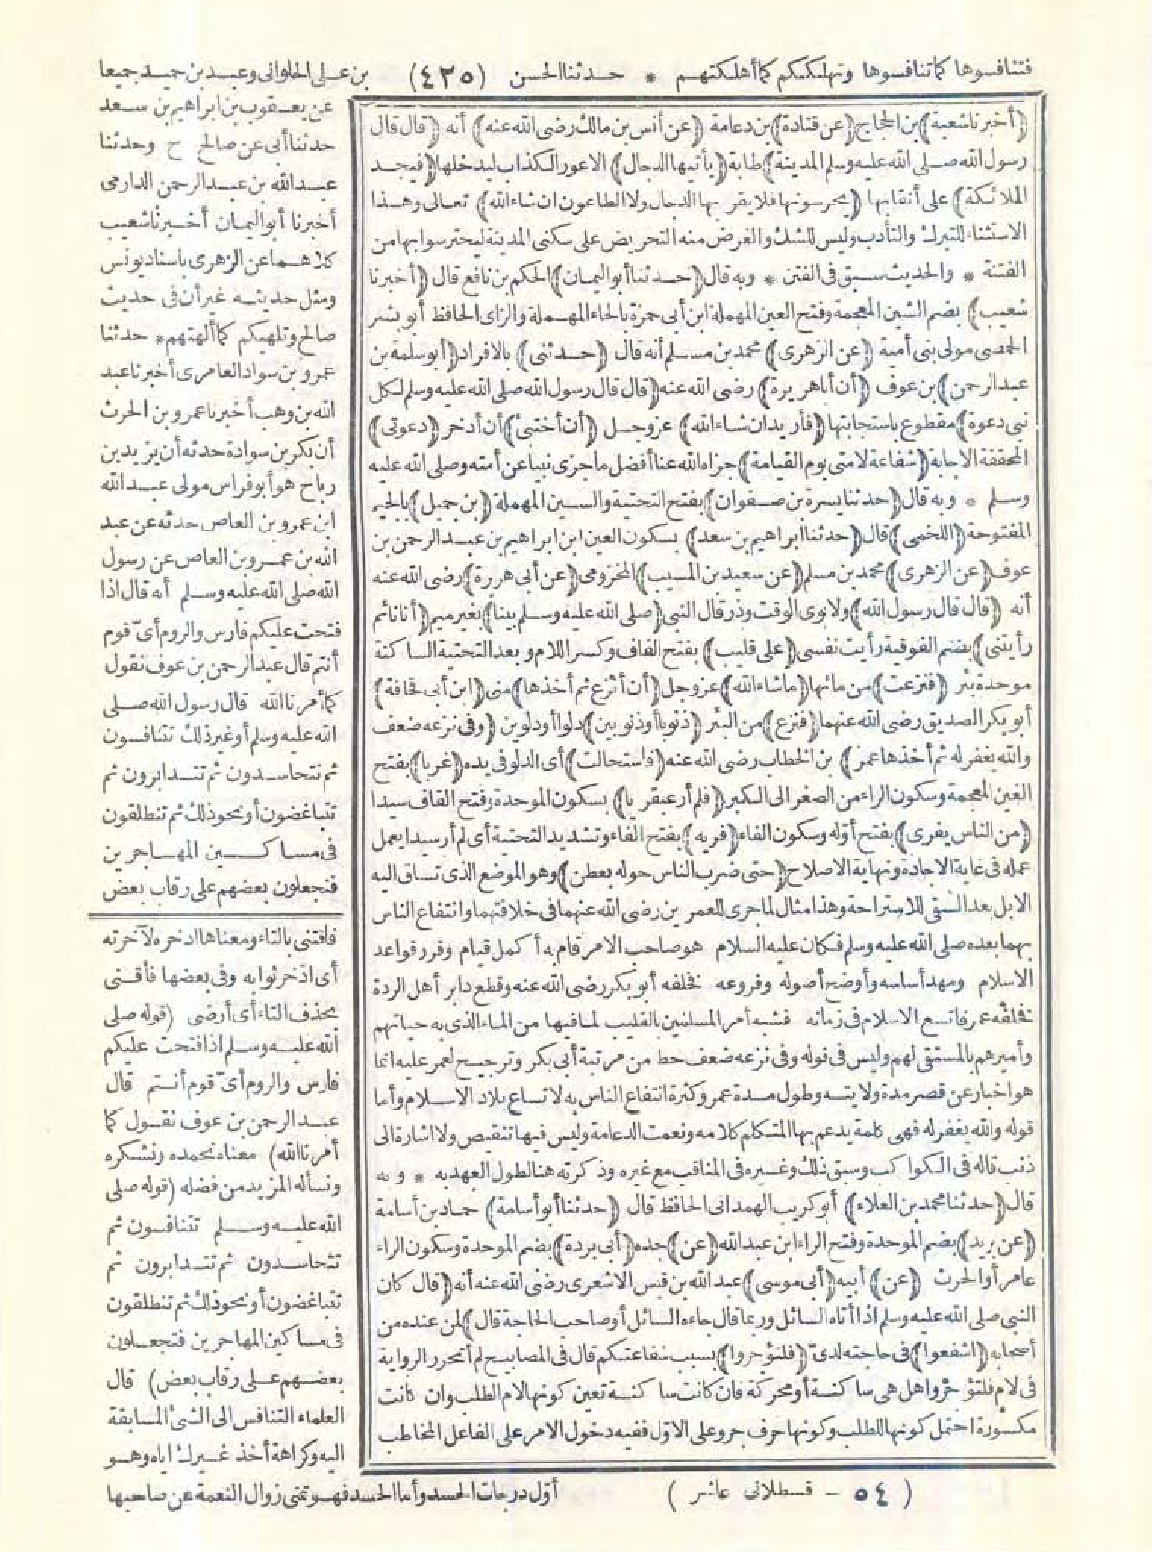 فتنافسوها كما تنافسوها وتهلككم كما أهلكتهم * حدثنا الحسن (٤٢٥) بن على الحلوانى وعبد بن حميد جميعا
(أخبرنا شعبة) بن الحجاج (عن قتادة) بن دعامة (عن أنس بن مالك رضى الله عنه) أنه (قال قال
رسول الله صلى الله عليه وسلم المدينة) طابة (يأتيها الدجال) الاعور الكذاب ليدخلها (فيجد
الملائكة) على أنقابها (يحرسونها فلا يقربها الدجال ولا الطاعون ان شاء الله) تعالى وهذا
الاستثناء للتبرك والتأدب وليس للشك والغرض منه التحريض على سكنى المدينة ليحترسوا بها من
الفتنة * والحديث سبق فى الفتن * وبه قال (حدثنا أبو اليمان) الحكم بن نافع قال (أخبرنا
شعيب) بضم الشين المعجمة وفتح العين المهملة ابن أبى حمزة بالحاء المهملة والزاى الحافظ أبو بشر
الحمصى مولى بنى أمية (عن الزهرى) محمد بن مسلم أنه قال (حدثنى) بالافراد (أبو سلمة بن
عبد الرحمن) بن عوف (أن أبا هريرة) رضى الله عنه (قال قال رسول الله صلى الله عليه وسلم لكل
نبى دعوة) مقطوع باستجابتها (فأريد ان شاء الله) عزوجل (أن أختبئ) أن أدخر (دعوتى)
المحققة الاجابة (شفاعة لامتى يوم القيامة) جزاه الله عنا أفضل ما جزى نبيا عن أمته وصلى الله عليه
وسلم * وبه قال (حدثنا يسرة بن صفوان) بفتح التحتية والسين المهملة (بن جميل) بالجيم
المفتوحة (اللخمى) قال (حدثنا ابراهيم بن سعد) بسكون العين ابن ابراهيم بن عبد الرحمن بن
عوف (عن الزهرى) محمد بن مسلم (عن سعيد بن المسيب) المخزومى (عن أبى هريرة) رضى الله عنه
أنه (قال قال رسول الله) ولابوى الوقت وذر قال النبى (صلى الله عليه وسلم بينا) بغير ميم (أنا نائم
رأيتنى) بضم الفوقية رأيت نفسى (على قليب) بفتح القاف وكسر اللام وبعد التحتية الساكنة
موحدة بئر (فنزعت) من مائها (ما شاء الله) عزوجل (أن أنزع ثم أخذها) منى (ابن أبى قحافة)
أبو بكر الصديق رضى الله عنهما (فنزع) من البئر (ذنوبا أو ذنوبين) دلوا أو دلوين (وفى نزعه ضعف
والله يغفر له ثم أخذها عمر) بن الخطاب رضى الله عنه (فاستحالت) أى الدلو فى يده (غربا) بفتح
الغين المعجمة وسكون الراء من الصغر الى الكبر (فلم أر عبقريا) بسكون الموحدة وفتح القاف سيدا
(من الناس يفرى) بفتح أوله وسكون الفاء (فريه) بفتح الفاء وتشديد التحتية أى لم أر سيدا يعمل
عمله فى غاية الاجادة ونهاية الاصلاح (حتى ضرب الناس حوله بعطن) وهو الموضع الذى تساق اليه
الابل بعد السقى للاستراحة وهذا مثال لما جرى للعمرين رضى الله عنهما فى خلافتهما وانتفاع الناس
بهما بعده صلى الله عليه وسلم فكان عليه السلام هو صاحب الامر قام به أكمل قيام وقرر قواعد
الاسلام ومهد أساسه وأوضح أصوله وفروعه فخلفه أبو بكر رضى الله عنه وقطع دابر أهل الردة
فخلفه عمر فاتسع الاسلام فى زمانه فشبه أمر المسلمين بالقليب لما فيها من الماء الذى به حياتهم
وأميرهم بالمستقى لهم وليس فى قوله وفى نزعه ضعف حط من مرتبة أبى بكر وترجيح لعمر عليه انما
هو اخبار عن قصر مدة ولايته وطول مدة عمر وكثرة انتفاع الناس به لاتساع بلاد الاسلام وأما
قوله والله يغفر له فهى كلمة يدعم بها المتكلم كلامه ونعمت الدعامة وليس فيها تنقيص ولا اشارة الى
ذنب قاله فى الكواكب وسبق ذلك وغيره فى المناقب مع غيره وذكرته هنا لطول العهد به * وبه
قال (حدثنا محمد بن العلاء) أبو كريب الهمدانى الحافظ قال (حدثنا أبو أسامة) حماد بن أسامة
(عن بريد) بضم الموحدة وفتح الراء ابن عبد الله (عن) جده (أبى بردة) بضم الموحدة وسكون الراء
عامر أو الحرث (عن) أبيه (أبى موسى) عبد الله بن قيس الاشعرى رضى الله عنه أنه (قال كان
النبى صلى الله عليه وسلم اذا أتاه السائل وربما قال جاءه السائل أو صاحب الحاجة قال) لمن عنده من
أصحابه (اشفعوا) فى حاجته لدى (فلتؤجروا) بسبب شفاعتكم قال فى المصابيح لم أتحرر الرواية
فى لام فلتؤجروا هل هى ساكنة أو محركة فان كانت ساكنة تعين كونها لام الطلب وان كانت
مكسورة احتمل كونها للطلب وكونها حرف جر وعلى الاول ففيه دخول الامر على الفاعل المخاطب
عن يعقوب بن ابراهيم بن سعد
حدثنا أبى عن صالح ح وحدثنا
عبد الله بن عبد الرحمن الدارمى
أخبرنا أبو اليمان أخبرنا شعيب
كلاهما عن الزهرى باسناد يونس
ومثل حديثه غير أن فى حديث
صالح وتلهيكم كما ألهتهم * حدثنا
عمرو بن سواد العامرى أخبرنا عبد
الله بن وهب أخبرنا عمرو بن الحرث
أن بكر بن سوادة حدثه أن يزيد بن
رباح هو أبو فراس مولى عبد الله
ابن عمرو بن العاص حدثه عن عبد
الله بن عمرو بن العاص عن رسول
الله صلى الله عليه وسلم أنه قال اذا
فتحت عليكم فارس والروم أى قوم
أنتم قال عبد الرحمن بن عوف نقول
كما أمرنا الله قال رسول الله صلى
الله عليه وسلم أو غير ذلك تتنافسون
ثم تتحاسدون ثم تتدابرون ثم
تتباغضون أو نحو ذلك ثم تنطلقون
فى مساكين المهاجرين
فتجعلون بعضهم على رقاب بعض
فاقتنى بالتاء ومعناها ادخره لآخرته
أى ادخر ثوابه وفى بعضها فأقنى
بحذف التاء أى أرضى (قوله صلى
الله عليه وسلم اذا فتحت عليكم
فارس والروم أى قوم أنتم قال
عبد الرحمن بن عوف نقول كما
أمرنا الله) معناه نحمده ونشكره
ونسأله المزيد من فضله (قوله صلى
الله عليه وسلم تتنافسون ثم
تتحاسدون ثم تتدابرون ثم
تتباغضون أو نحو ذلك ثم تنطلقون
فى مساكين المهاجرين فتجعلون
بعضهم على رقاب بعض) قال
العلماء التنافس الى الشئ المسابقة
اليه وكراهة أخذ غيرك اياه وهو
أول درجات الحسد وأما الحسد فهو تمنى زوال النعمة عن صاحبها
(٥٤ - قسطلانى عاشر)